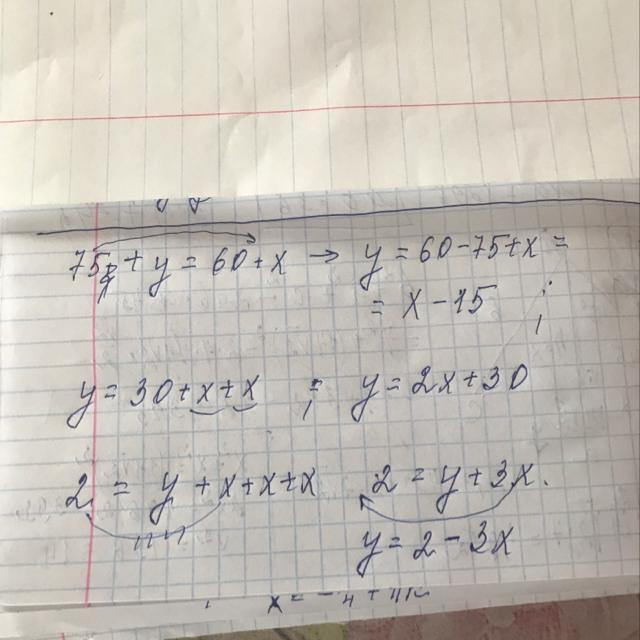 75 + y = 60 + x → y = 60 - 75 + x =
= x - 15 ;
y = 30 + x + x ; y = 2x + 30
2 = y + x + x + x 2 = y + 3x.
y = 2 - 3x